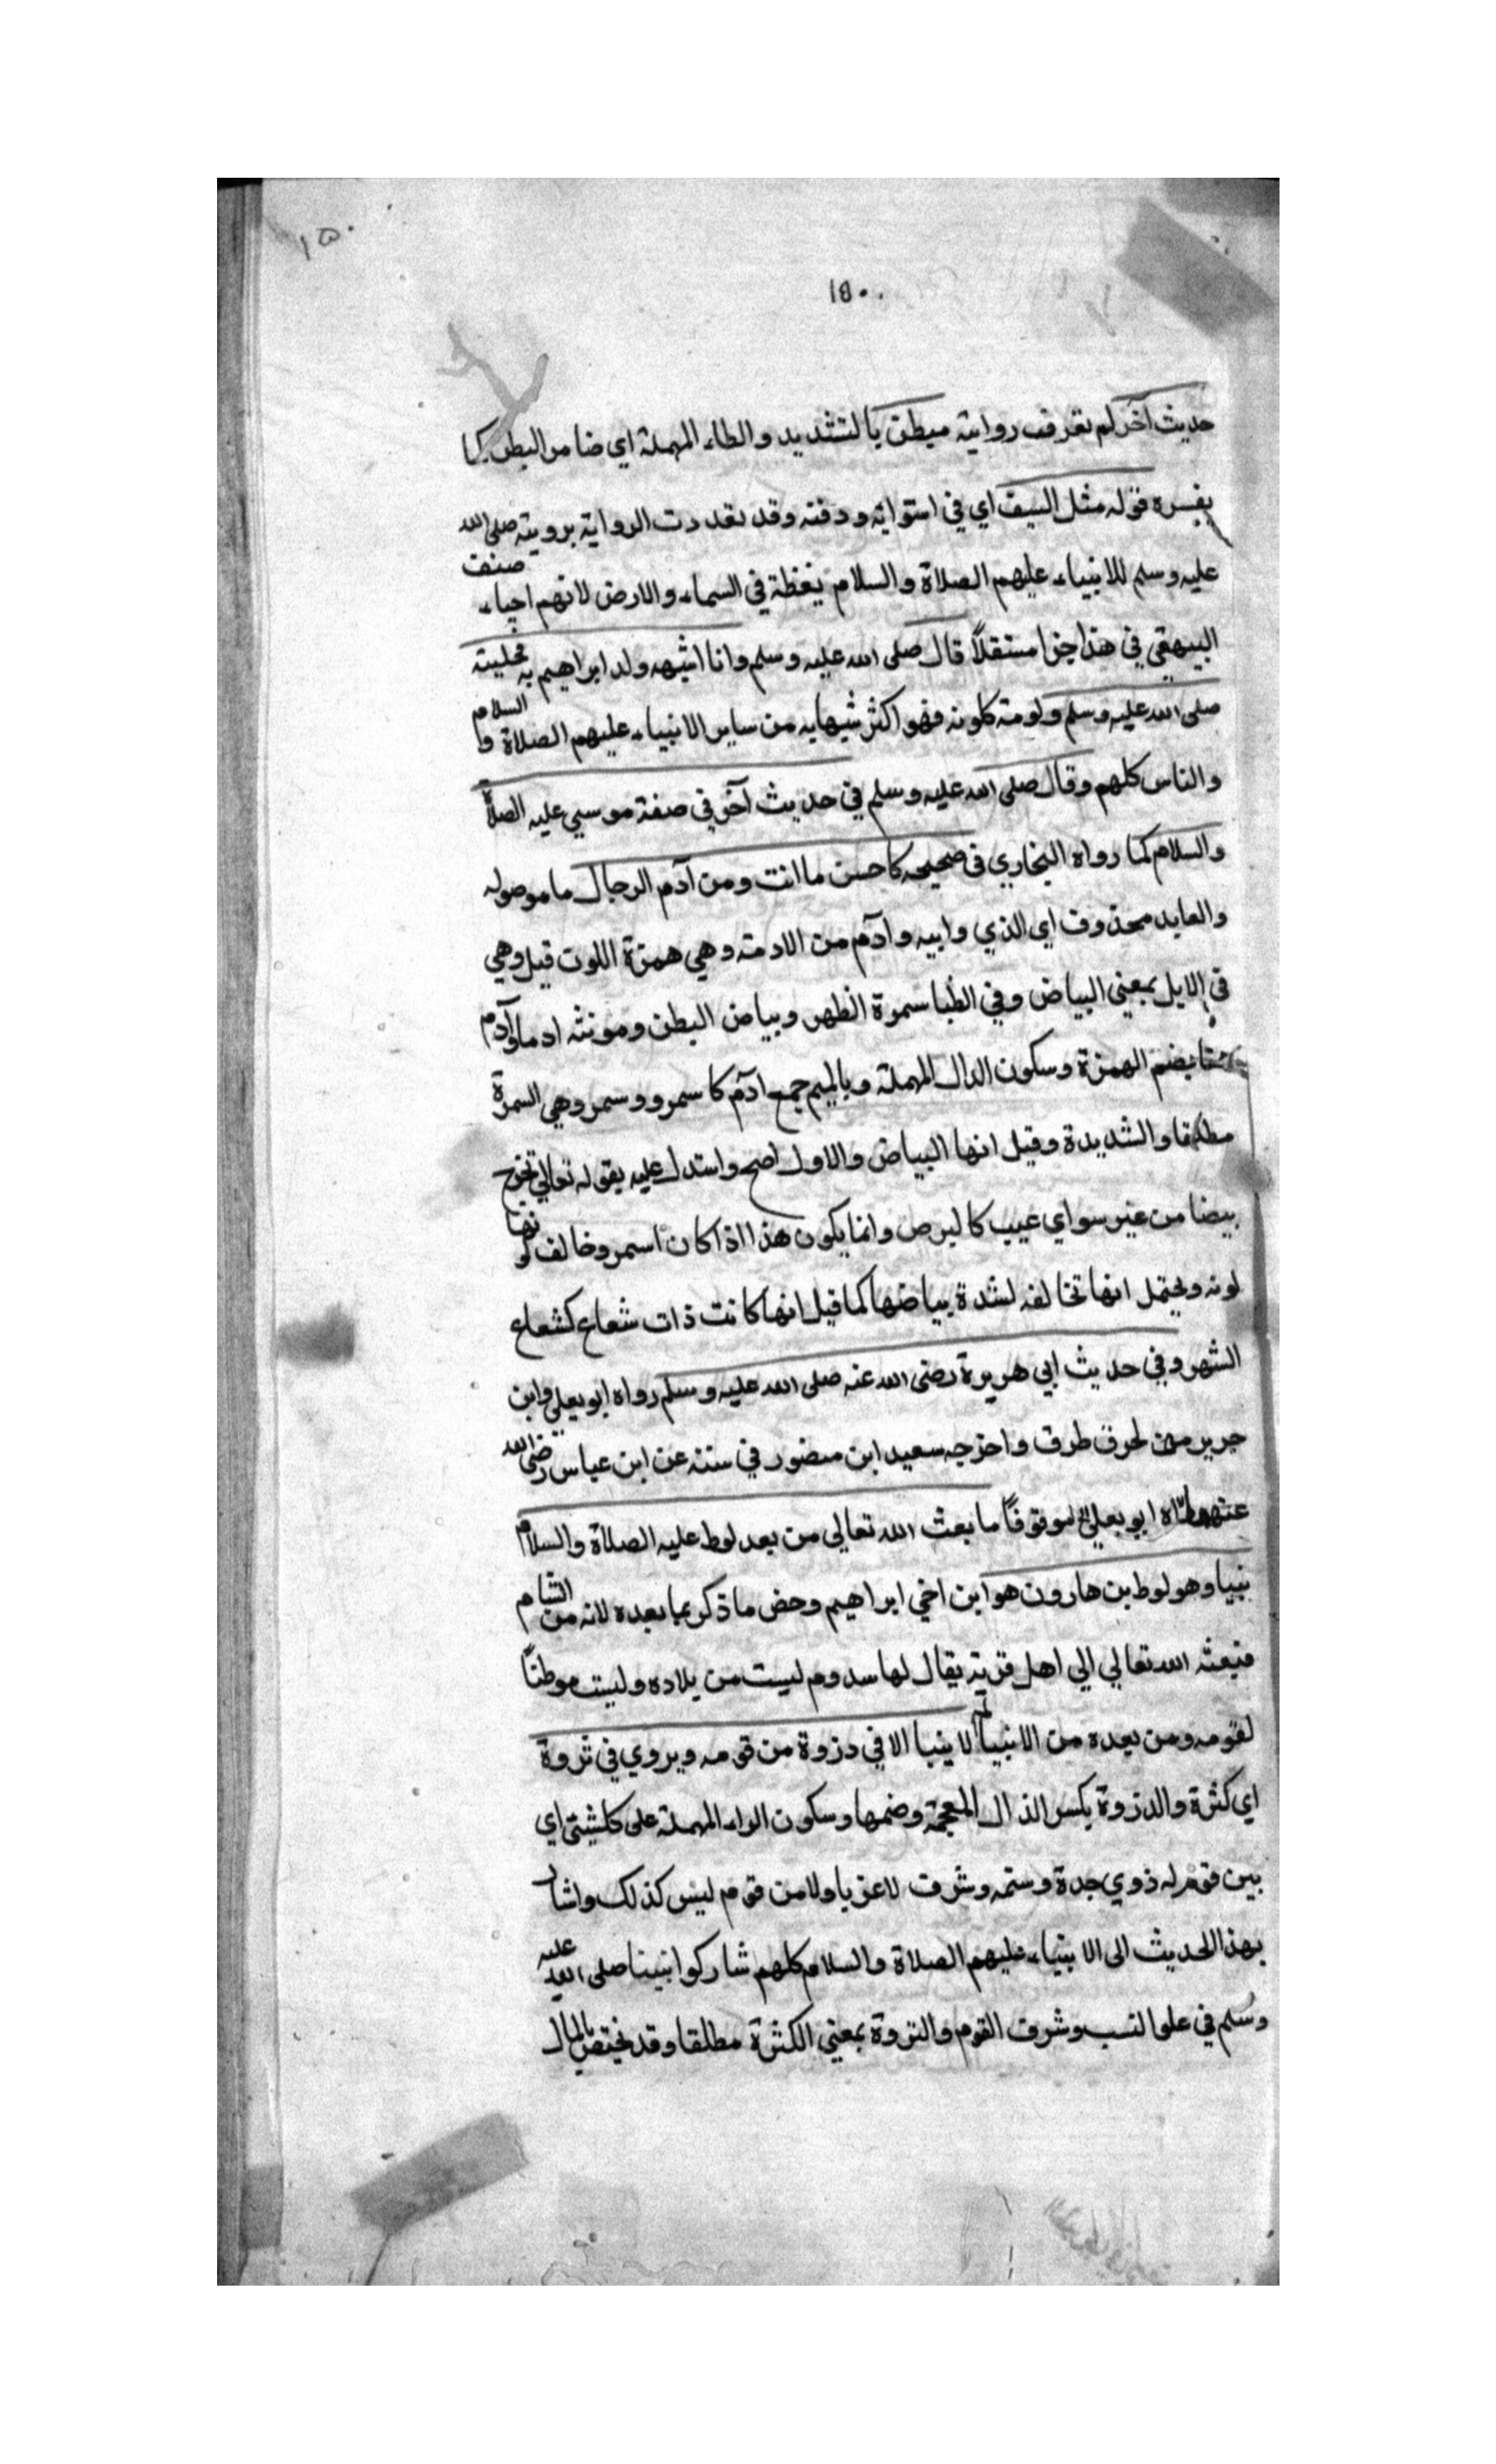 ١٥٠
١٥٠
حديث آخر لم تعرف رواية مبطن بالتشديد والطاء المهملة اي ضامر البطن كما
يفسره قوله مثل السيف اي في استوائه ودقته وقد تعددت الرواية برويته صلى الله
عليه وسلم للانبياء عليهم الصلاة والسلام يغظة في السماء والارض لانهم احياء صنف
البيهقي في هذا جزا مستقلاً قال صلى الله عليه وسلم وانا اشبه ولد ابراهيم به
صلى الله عليه وسلم فهو اكثر شبها به من ساير الانبياء عليهم الصلاة والسلام
والناس كلهم وقال صلى الله عليه وسلم في حديث آخر في صفة موسى عليه الصلاة
والسلام كما رواه البخاري في صحيحه كاحسن ما انت ومن آدم الرجال ما موصوله
والعايد محذوف اي الذي وابيه وآدم من الادمة وهي همزة اللون قيل وهي
في الابل بمعني البياض وفي الظبا سمرة الظهر وبياض البطن ومونثه ادما وآدم
بضم الهمزة وسكون الدال المهملة وبالميم جمع ادم كا سمرو وسمر وهي السمرة
مطلقا والشديدة وقيل انها البياض والاول اصح واستدل عليه بقوله تعالي تخرج
بيضا من غير سو اي عيب كالبرص وانما يكون هذا اذا كان اسمر وخالف لونها
لونه ويحتمل انها تخالفه لشدة بياضها كما قيل انها كانت ذات شعاع كشعاع
الشهر وفي حديث ابي هريرة رضى الله عنه صلى الله عليه وسلم رواه ابو يعلى وابن
جرير من طرق واخرجه سعيد ابن منصور في سننه عن ابن عباس رضي الله
عنهما ابو يعلي موقوفاً ما بعث الله تعالى من بعد لوط عليه الصلاة والسلام
نبيا وهو لوط بن هارون هو ابن اخي ابراهيم وخص ما ذكر بما بعده لانه من الشام
فبعثه الله تعالي الي اهل قرية يقال لها سدوم ليست من بلاده وليست موطناً
لقومه ومن بعده من الانبيا لم لا ينبا الا في دزوة من قومه ويروي في ثروة
اي كثرة والدزوة بكسر الذال المعجمة وضمها وسكون الراء المهملة على كلشيئ اي
بين قوم له ذوي جدة وشرف لا غريا ولا من قوم ليس كذلك واشار
بهذا الحديث الى الانبياء عليهم الصلاة والسلام كلهم شاركوا نبينا صلى الله عليه
وسلم في علو النسب وشرف القوم والثروة بمعني الكثرة مطلقا وقد يختص بالمال